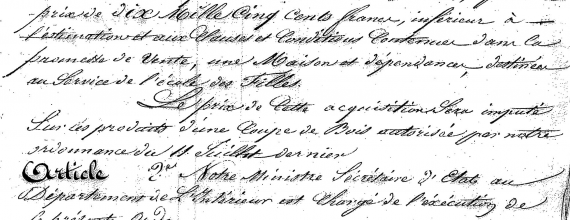 prix de dix Mille Cinq cents francs, inférieur à
l'estimation et aux Clauses et Conditions Contenues dans la
promesse de Vente, une Maison et dépendances, destinées
au Service de l'école des Filles.
Le prix de Cette acquisition Sera imputé
Sur les produits d'une Coupe de Bois autorisée par notre
ordonnance du 11 Juillet dernier
Article 2e Notre Ministre Sécrétaire d'Etat au
Département de L'Intérieur est Chargé de l'exécution de